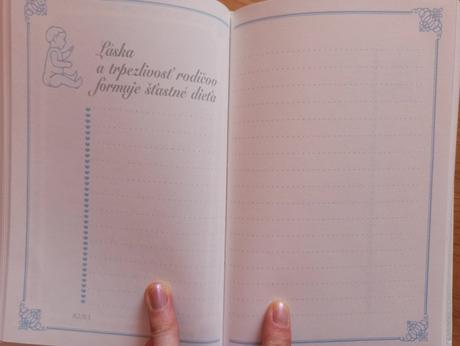 Láska
a trpezlivosť rodičov
formuje šťastné dieťa
82/83